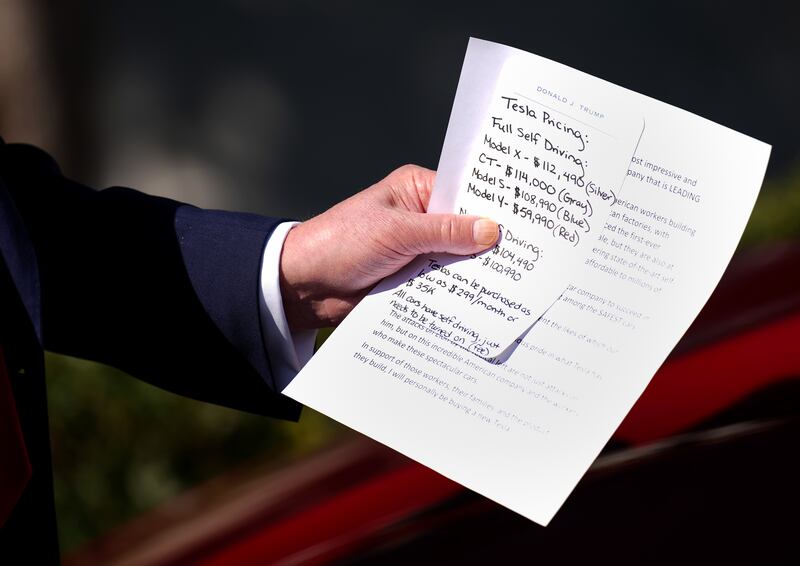 DONALD J. TRUMP
Tesla Pricing:
Full Self Driving:
Model X - $112,490 (Silver)
CT - $114,000 (Gray)
Model S - $108,990 (Blue)
Model Y - $59,990 (Red)
Driving:
$104,490
- $100,990
Teslas can be purchased as
low as $299/month or
$35K
All cars have self driving, just
needs to be turned on (Free)
ost impressive and
pany that is LEADING
erican workers building
can factories, with
ced the first-ever
ale, but they are also at
ering state of the art self
affordable to millions of
car company to succeed in
among the SAFEST cars
nt the likes of which our
us pride in what Tesla has
The attacks on left are not just attacks on
him, but on this incredible American company and the workers
who make these spectacular cars.
In support of those workers, their families, and the product
they build, I will personally be buying a new Tesla